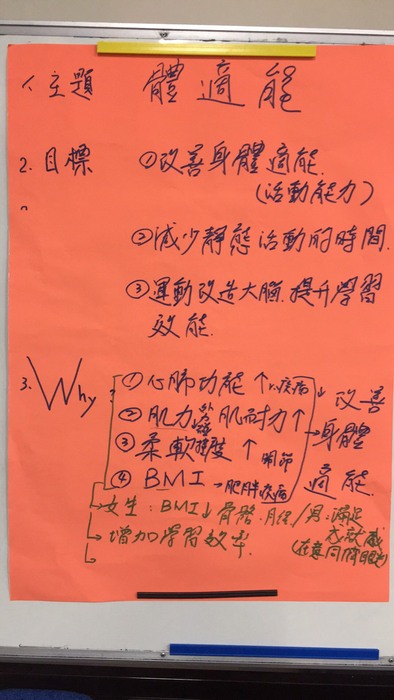 1. 主題 體適能
2. 目標 ①改善身體適能.
(活動能力)
②減少靜態活動的時間.
③運動改造大腦.提升學習
效能.
3. Why ①心肺功能↑心疾病↓改善
②肌力 肌耐力↑→身體
③柔軟度↑關節 適能.
④BMI→肥胖疾病
→女生:BMI↓骨骼.月經/男:滿足
成就感
→增加學習效率. (在意同儕眼光)